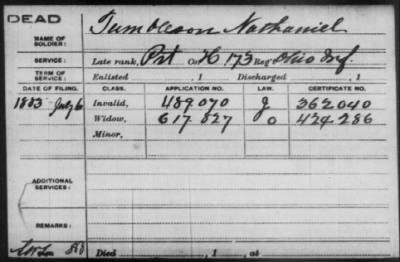 DEAD
NAME OF SOLDIER: Tumbleson Nathaniel
SERVICE: Late rank, Prt Co H 173 Reg't Ohio Inf.
TERM OF SERVICE: Enlisted , 1 Discharged , 1
DATE OF FILING. CLASS. APPLICATION NO. LAW. CERTIFICATE NO.
1883 July 6 Invalid, 489070 J 362040
Widow, 617827 O 424286
Minor,
ADDITIONAL SERVICES:
REMARKS:
Died , 1 , at